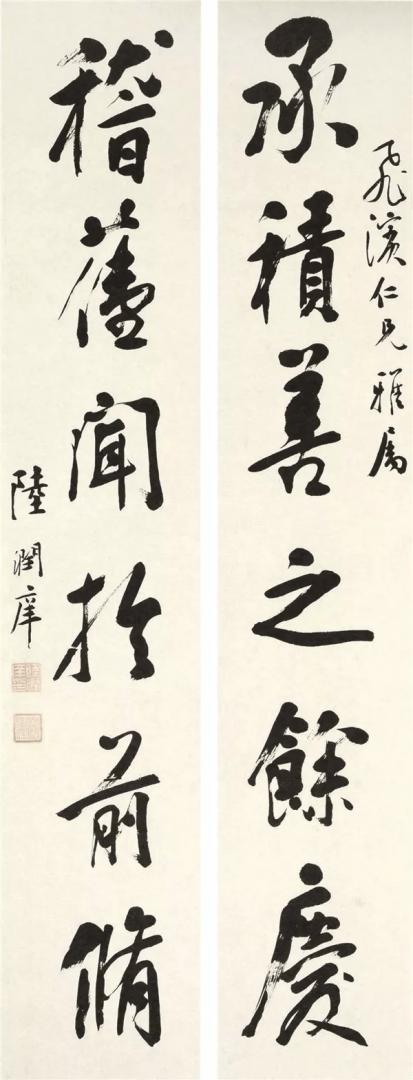 飛濱仁兄雅屬
承積善之餘慶
稽舊聞於前脩
陸潤庠